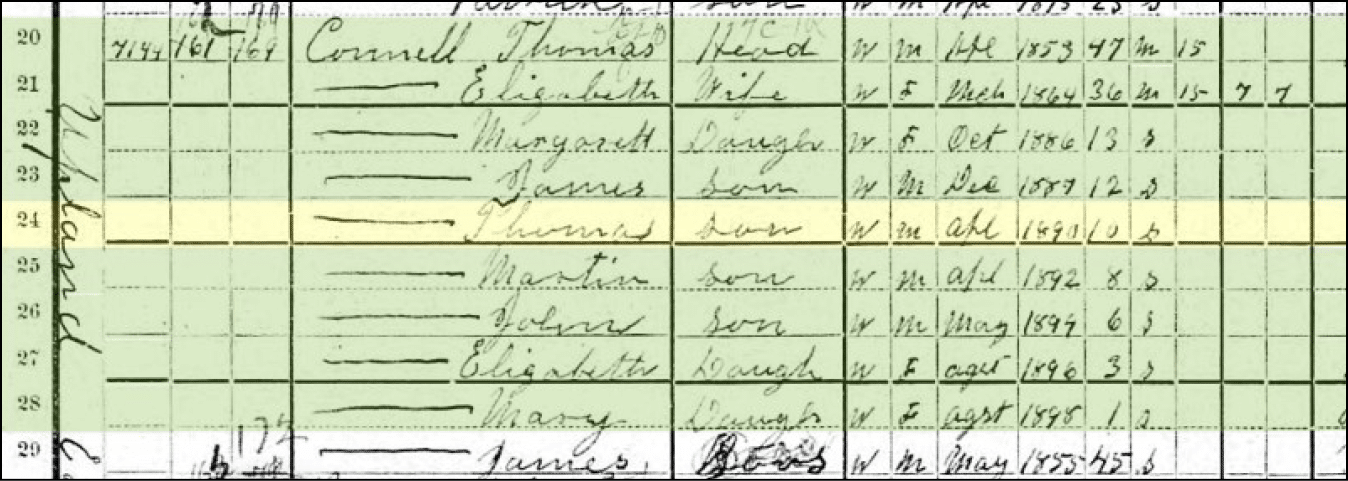 20 7144 161 169 Connell Thomas Head W M Apl 1853 47 M 15
21 Elizabeth Wife W F Mch 1864 36 M 15 7 7
22 Margarett Daugh W F Oct 1886 13 S
23 James Son W M Dec 1887 12 S
24 Thomas Son W M Apl 1890 10 S
25 Martin Son W M Apl 1892 8 S
26 John Son W M May 1894 6 S
27 Elizabeth Daugh W F Agst 1896 3 S
28 Mary Daugh W F Agst 1898 1 S
29 172 James W M May 1855 45 S
Upland